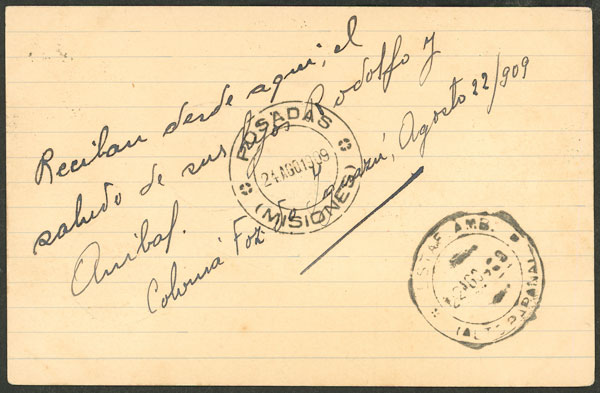 Reciban desde aqui, el
saludo de sus hijos Rodolfo y
Anibal.
Colonia Foz Yguazú, Agosto 22/909
POSADAS
24 AGO 1909
(MISIONES)
ESTAF. AMB.
22 AGO
(ALTO PARANA)